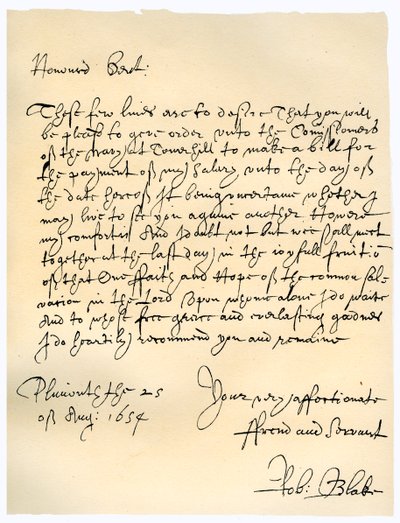 Honoured Bert:
These few lines are to desire That you will
be please to geve order vnto the Comissioners
of the navy at Towerhill to make a bill for
the payment of my salary vnto the day of
the date hereof It being vncertane whether I
may live to see you againe another Howere
my comfort is And I doubt not but wee shall meet
together at the last day in the ioyfull fruiti
of that One ffaith and Hope of the common sal
vation in the Lord Vpon whome alone I do waite
And to whose free grace and everlasting goodnes
I do heartily recommend you and remaine
Plimouth the 25
of Aug: 1654
Your very affectionate
ffrend and Servant
Rob: Blake